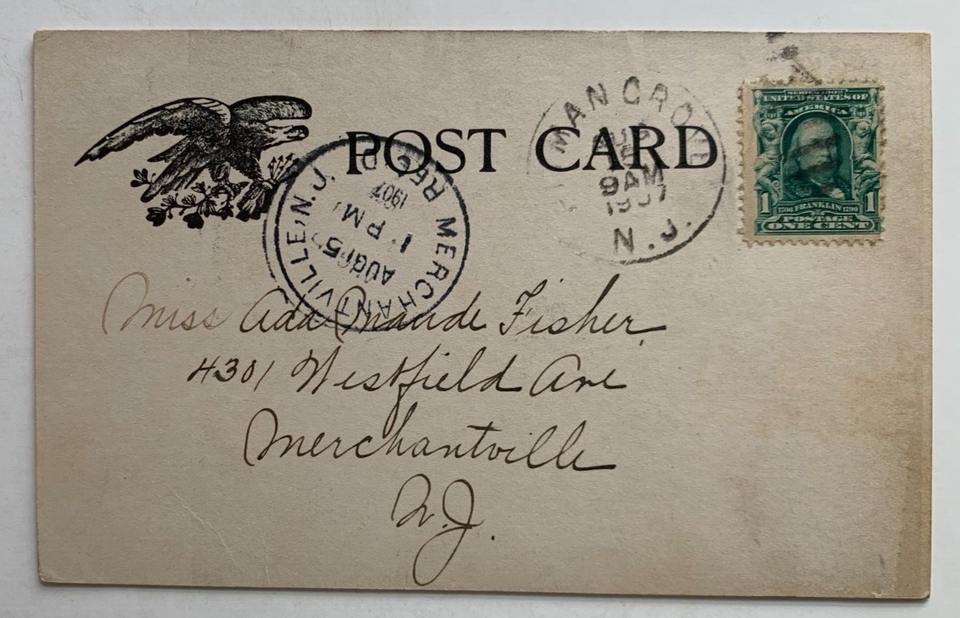 POST CARD
MERCHANTVILLE, N.J. REC'D.
AUG 5
1 PM
1907
9 AM
1907
N. J.
SERIES 1902
UNITED STATES OF
AMERICA
1 FRANKLIN 1
1706 1790
POSTAGE
ONE CENT
Miss Ada Maude Fisher
4301 Westfield Ave
Merchantville
N.J.